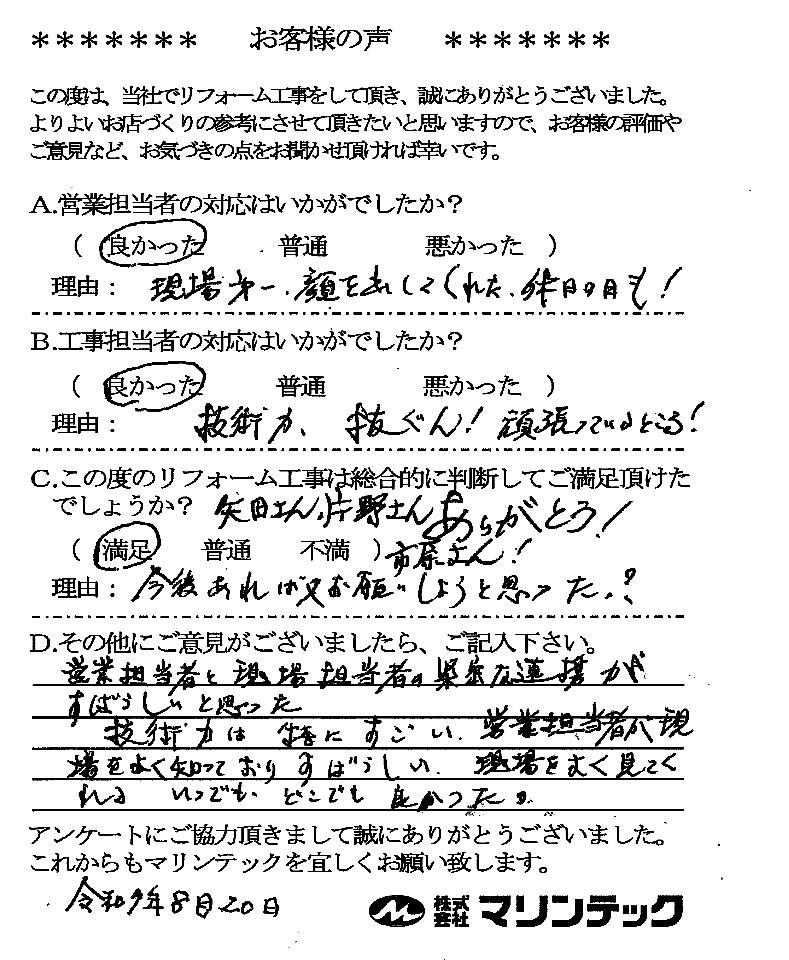 ******* お客様の声 *******
この度は、当社でリフォーム工事をして頂き、誠にありがとうございました。
よりよいお店づくりの参考にさせて頂きたいと思いますので、お客様の評価や
ご意見など、お気づきの点をお聞かせ頂ければ幸いです。
A.営業担当者の対応はいかがでしたか？
( 良かった 普通 悪かった )
理由： 現場第一、顔を出してくれた、休日の日も！
B.工事担当者の対応はいかがでしたか？
( 良かった 普通 悪かった )
理由： 技術力、抜ぐん！頑張っているところ！
C.この度のリフォーム工事は総合的に判断してご満足頂けた
でしょうか？ 矢田さん、片野さんありがとう！
( 満足 普通 不満 ) 市原さん！
理由：今後あれば又お願いしようと思った。？
D.その他にご意見がございましたら、ご記入下さい。
営業担当者と現場担当者の緊密な連携が
すばらしいと思った
技術力は特にすごい、営業担当者が現
場をよく知っておりすばらしい、現場をよく見てく
れる いつでも、どこでも良かった。
アンケートにご協力頂きまして誠にありがとうございました。
これからもマリンテックを宜しくお願い致します。
令和7年8月20日
M 株式会社 マリンテック